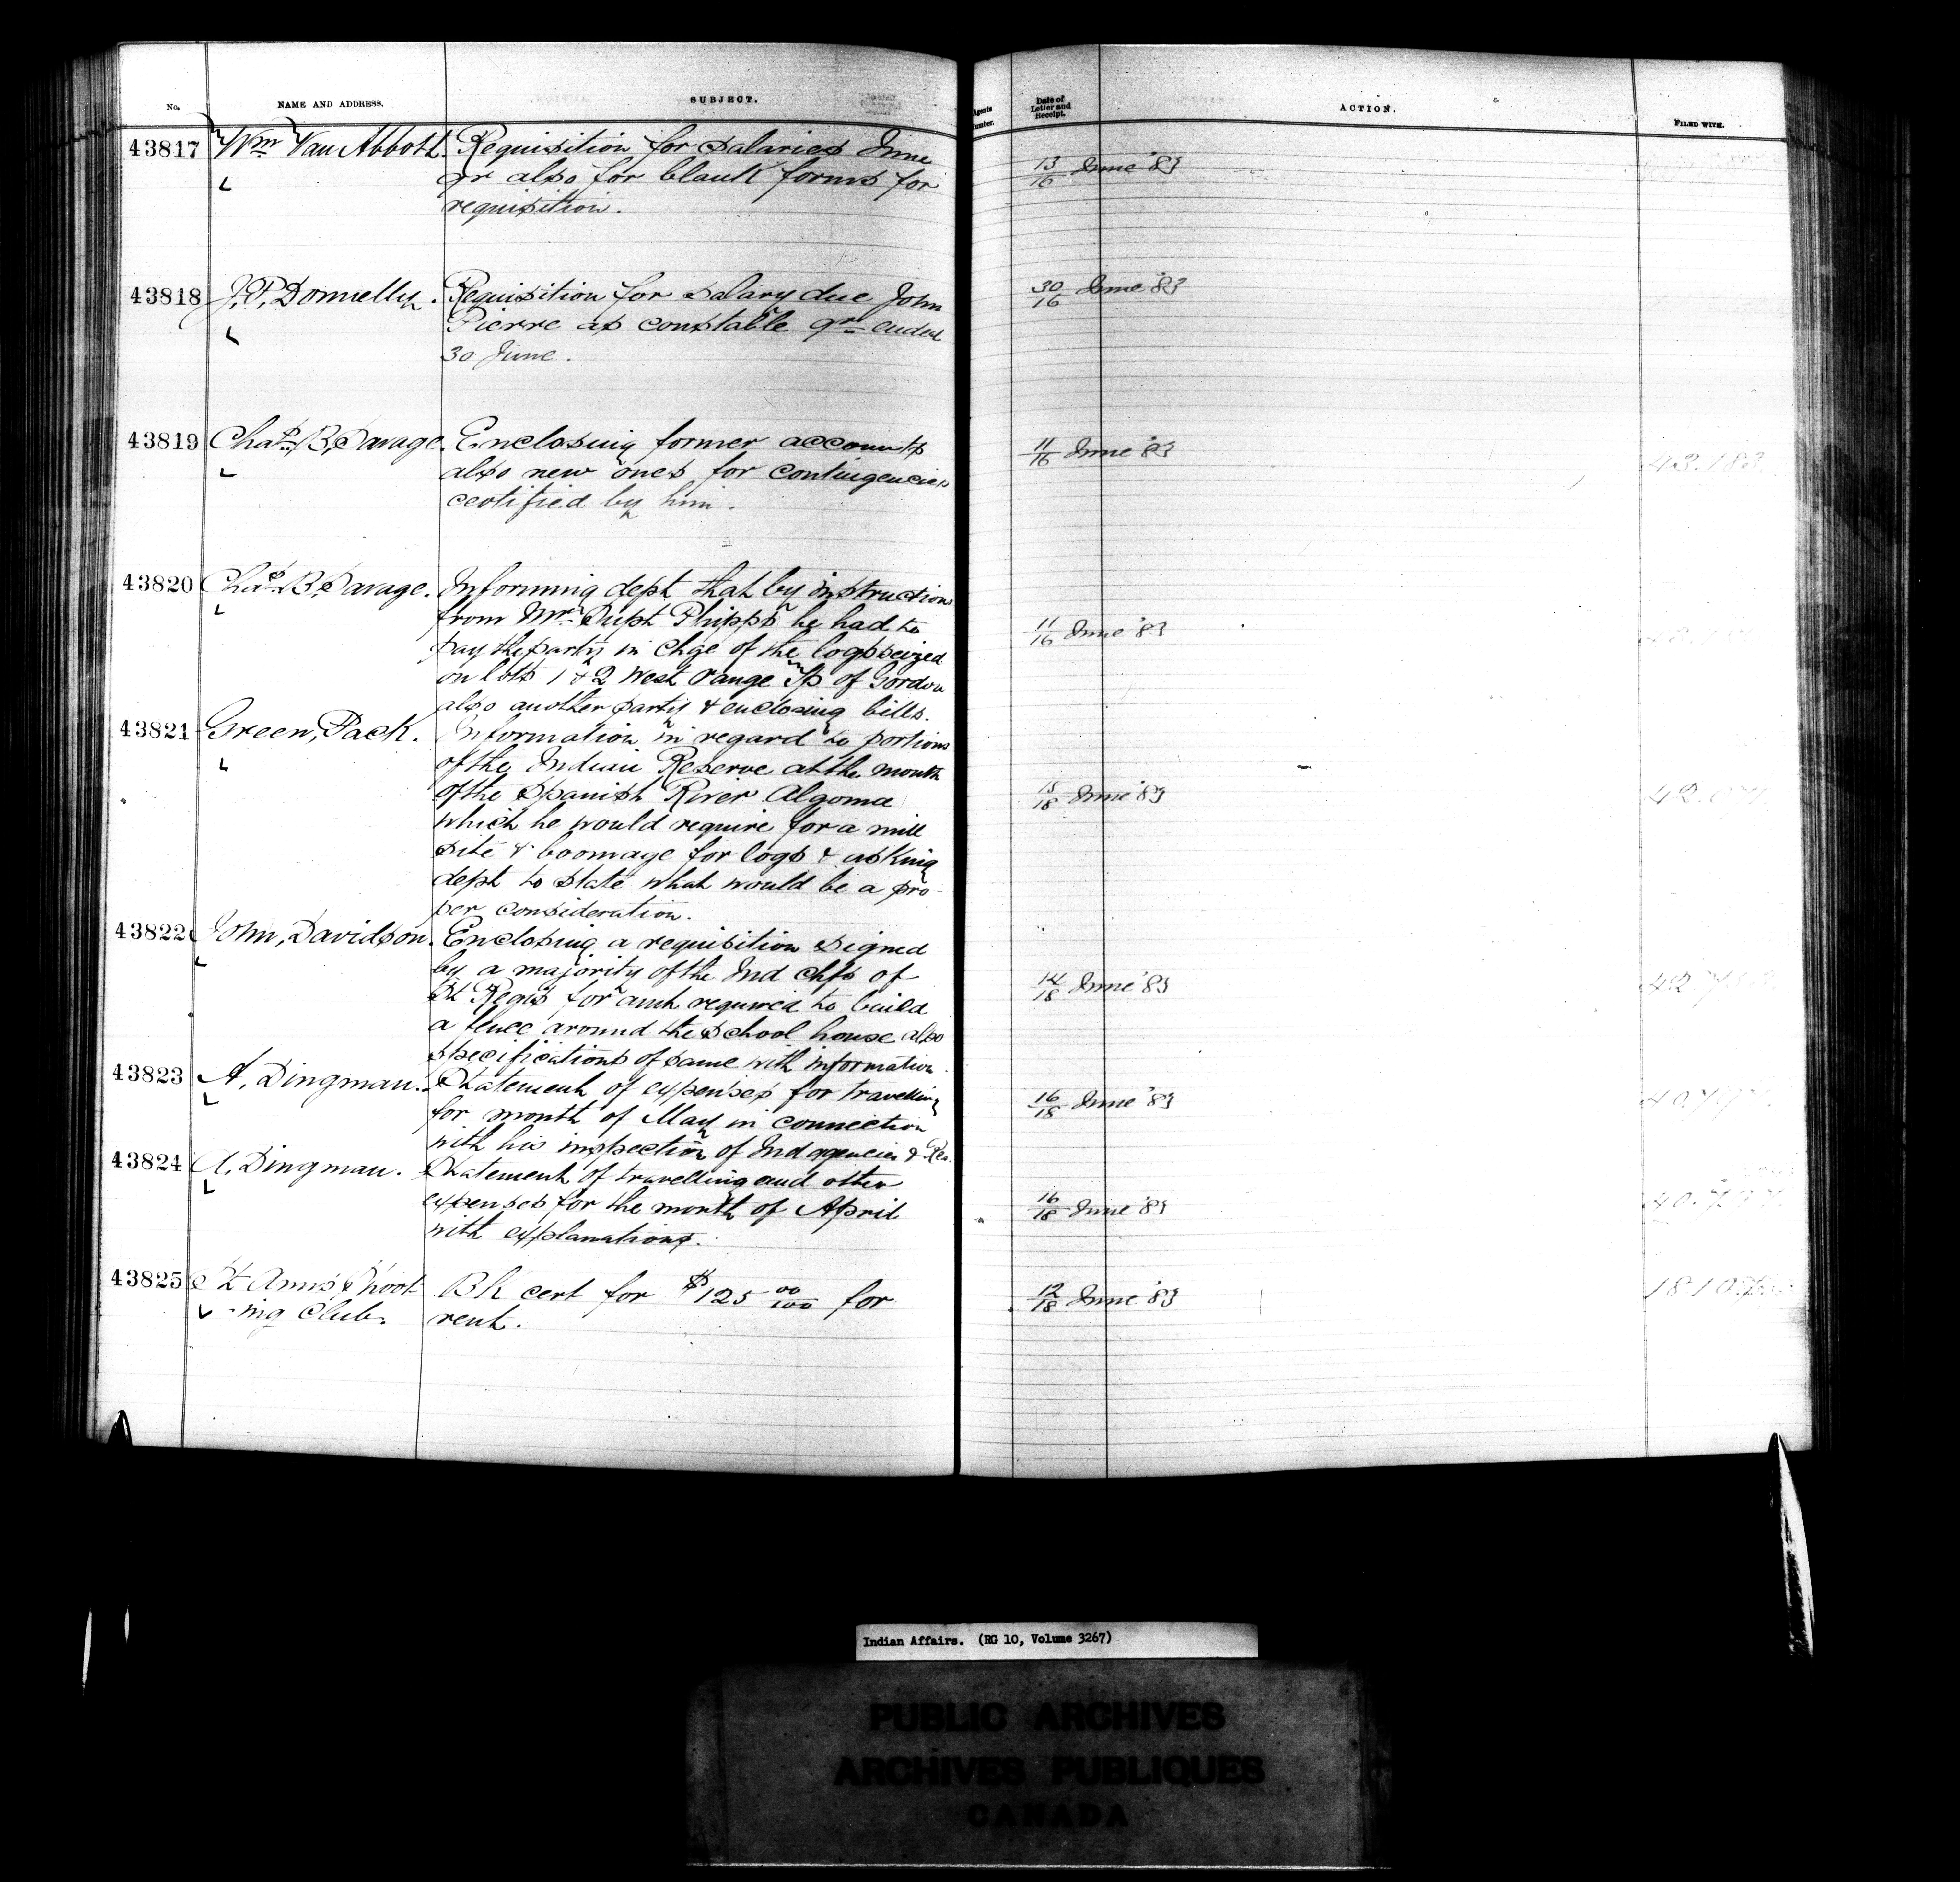 No.
NAME AND ADDRESS.
SUBJECT.
Agents
Number.
Date of
Letter and
Receipt.
ACTION.
FILED WITH.
43817 Wm Van Abbott. Requisition for salaries June
qr also for blank forms for
requisition.
13/16 June '83
43818 J.P. Donnelly. Requisition for salary due John
Pierre as constable qr ended
30 June.
30/16 June '83
43819 Chas. B. Savage. Enclosing former accounts
also new ones for contingencies
certified by him.
11/16 June '83
43.183
43820 Chas. B. Savage. Informing dept that by instructions
from Mr Supt Phipps he had to
pay the party in chge of the logs seized
on lots 1 & 2 West range Tp of Gordon
also another party & enclosing bills.
11/16 June '83
43821 Green, Pack. Information in regard to portions
of the Indian Reserve at the mouth
of the Spanish River Algoma
which he would require for a mill
site & boomage for logs & asking
dept to state what would be a pro-
per consideration.
15/18 June '83
43822 John, Davidson. Enclosing a requisition signed
by a majority of the Ind chfs of
St Regis for amt required to build
a fence around the school house also
specifications of same with information.
14/18 June '83
43823 A. Dingman. Statement of expenses for travelling
for month of May in connection
with his inspection of Ind agencies & Res.
16/18 June '83
43824 A. Dingman. Statement of travelling and other
expenses for the month of April
with explanations.
16/18 June '83
43825 St Anns Shoot-
-ing Club. Bk cert for $125 00/100 for
rent.
12/18 June '83
Indian Affairs. (RG 10, Volume 3267)
PUBLIC ARCHIVES
ARCHIVES PUBLIQUES
CANADA